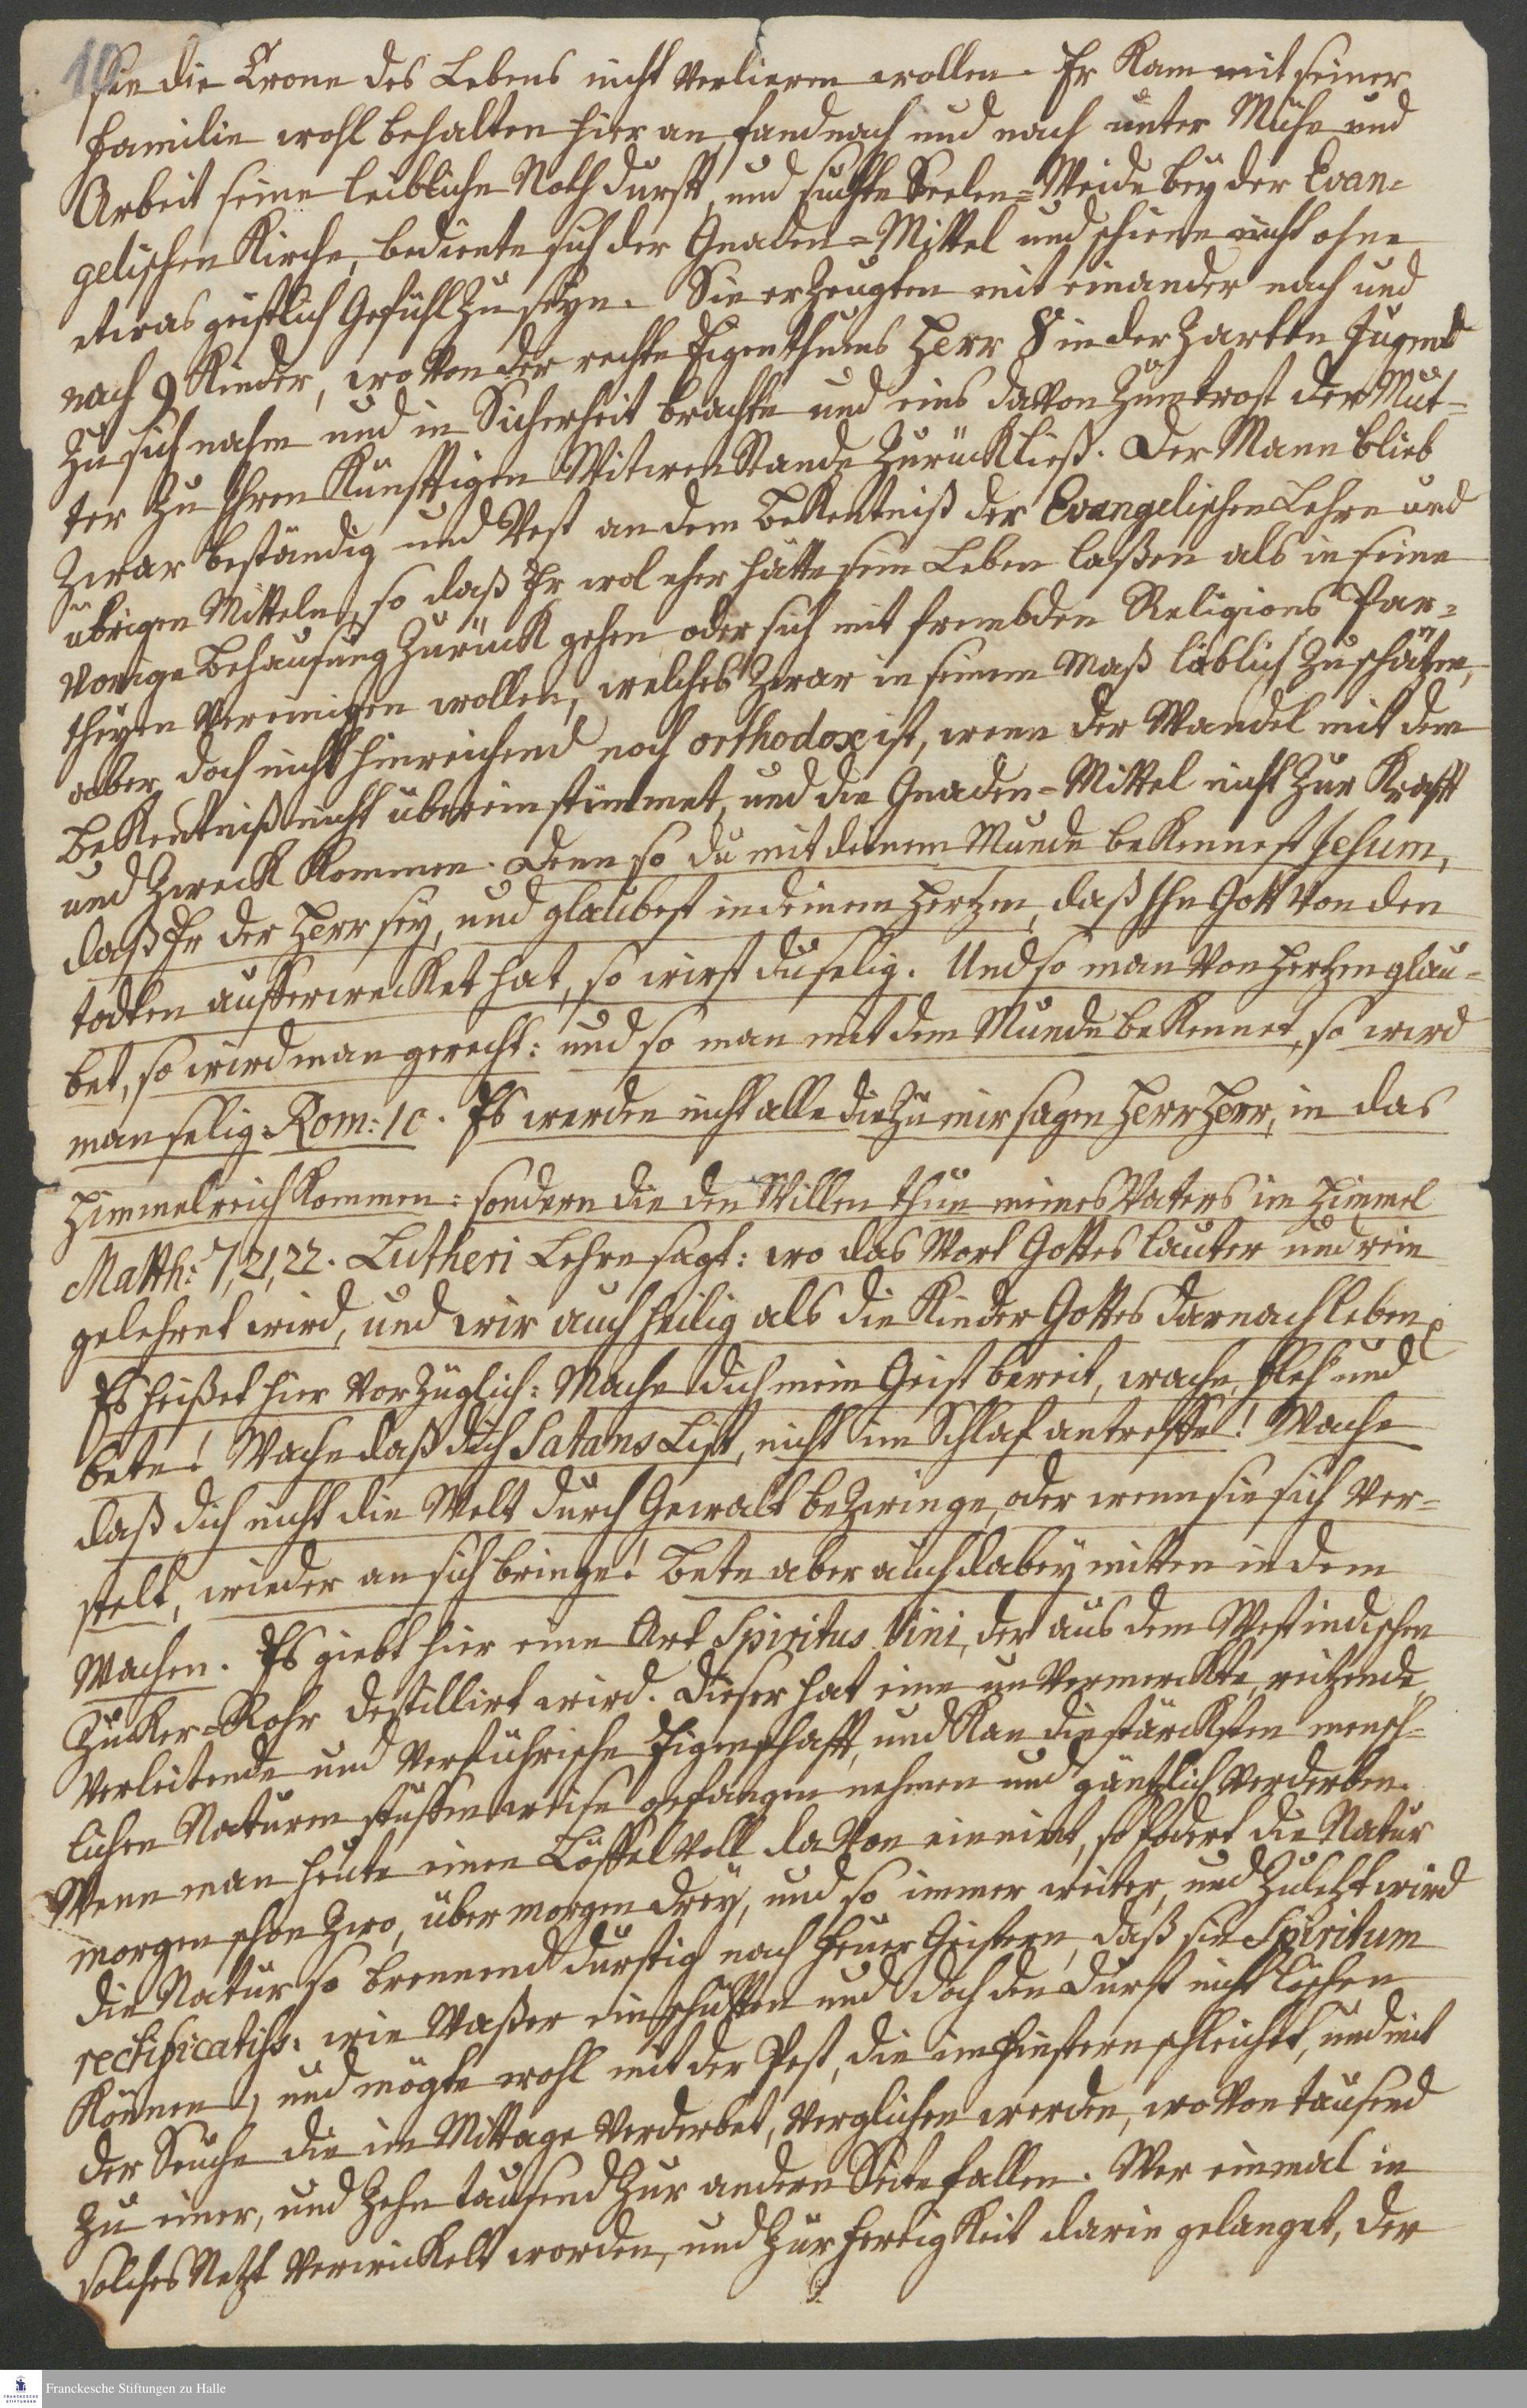 10
Sie die Crone des Lebens nicht verlieren wollen. Er kam mit seiner
Familie wohl behalten hier an, fand nach und nach unter Mühe und
Arbeit seine leibliche Nothdurfft, und suchte Seelen=Weide bey der Evan=
gelischen Kirche, bediente sich der Gnaden=Mittel und schiene nicht ohne
etwas geistlich Gefühl zu seyn. Sie erzeugten mit einander nach und
nach 9 Kinder, wovon der rechte Eigenthums Herr 8 in der zarten Jugend
zu sich nahm und in Sicherheit brachte und eins davon zum trost der Mut=
ter zu Ihren künfftigen Witwen Stande zurückließ. Der Mann blieb
zwar beständig und Vest an dem Bekentniß der Evangelischen Lehre und
übrigen Mitteln, so daß Er wol eher hätte sein Leben laßen als in seine
vorige Behausung zurück gehen oder sich mit frembden Religions Par=
theyen vereinigen wollen, welches zwar in seinem Maß löblich zu schätzen,
aber doch nicht hinreichend noch orthodox ist, wenn der Wandel mit dem
Bekentniß nicht übereinstimmet, und die Gnaden=Mittel nicht zur Krafft
und Zweck kommen. Denn so du mit deinem Munde bekennest Jesum,
daß Er der Herr sey, und glaubest in deinem Hertzen, daß Ihn Gott von den
todten aufferwecket hat, so wirst du selig. Und so man von Hertzen glau=
bet, so wird man gerecht: und so man mit dem Munde bekennet, so wird
man selig. Rom: 10. Es werden nicht alle die zu mir sagen Herr Herr, in das
Himmelreich kommen: sondern die den Willen thun meines Vaters im Himmel
Matth: 7, 21, 22. Lutheri Lehre sagt: wo das Wort Gottes lauter und rein
gelehret wird, und wir auch heilig als die Kinder Gottes darnach leben
Es heißet hier vorzüglich: Mache dich mein Geist bereit, wache, fleh und
bete! Wache daß dich Satans List, nicht im Schlaf antreffe! Wache
daß dich nicht die Welt durch Gewalt bezwinge, oder wenn sie sich ver=
stelt, wieder an sich bringe! Bete aber auch dabey mitten in dem
Wachen. Es giebt hier eine Art Spiritus Vini, der aus dem Westindischen
Zucker=Rohr destillirt wird. Dieser hat eine unvermerckte, reitzende,
verleitende und verführische Eigenschafft, und kan die stärcksten mensch=
lichen Naturen stuffenweise gefangen nehmen und gäntzlich verderben.
Wenn man heute einen Löffel voll davon einnimt, so fodert die Natur
morgen schon zwo, über morgen drey, und so immer weiter, und zuletzt wird
die Natur so brennend durstig nach Feuer Geistern, daß sie Spiritum
rectificatiss: wie Waßer einschütten und doch den Durst nicht löschen
können, und mögte wohl mit der Pest, die im Finstern schleichet, und mit
der Seuche die im Mittage verderbet, verglichen werden, wovon tausend
zu einer, und zehn tausend zur andern Seite fallen. Wer einmal in
solches Netzt verwickelt worden, und zur Fertigkeit darin gelanget, der
Franckesche Stiftungen zu Halle